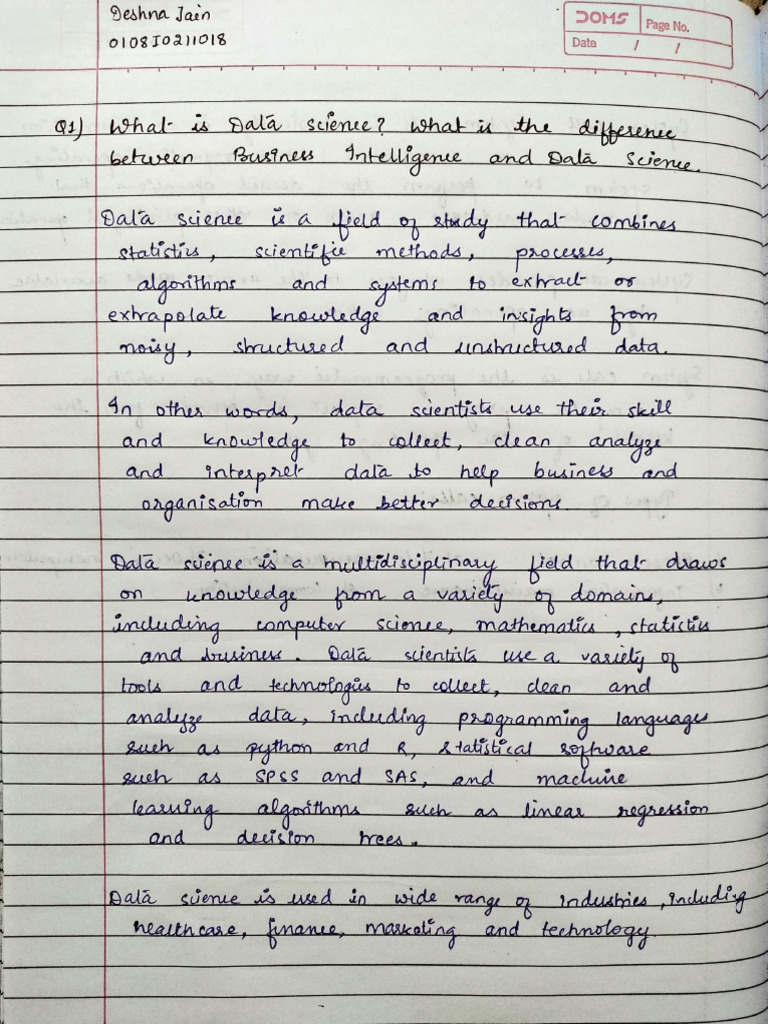 Deshna Jain
0108IO211018
DOMS
Page No.
Date / /
Q1) What is Data science? What is the difference
between Business Intelligence and Data Science.
Data science is a field of study that combines
statistics, scientific methods, processes,
algorithms and systems to extract or
extrapolate knowledge and insights from
noisy, structured and unstructured data.
In other words, data scientists use their skill
and knowledge to collect, clean analyze
and interpret data to help business and
organisation make better decisions.
Data science is a multidisciplinary field that draws
on knowledge from a variety of domains,
including computer science, mathematics, statistics
and business. Data scientists use a variety of
tools and technologies to collect, clean and
analyze data, including programming languages
such as python and R, statistical software
such as SPSS and SAS, and machine
learning algorithms such as linear regression
and decision trees.
Data science is used in wide range of industries, including
healthcare, finance, marketing and technology